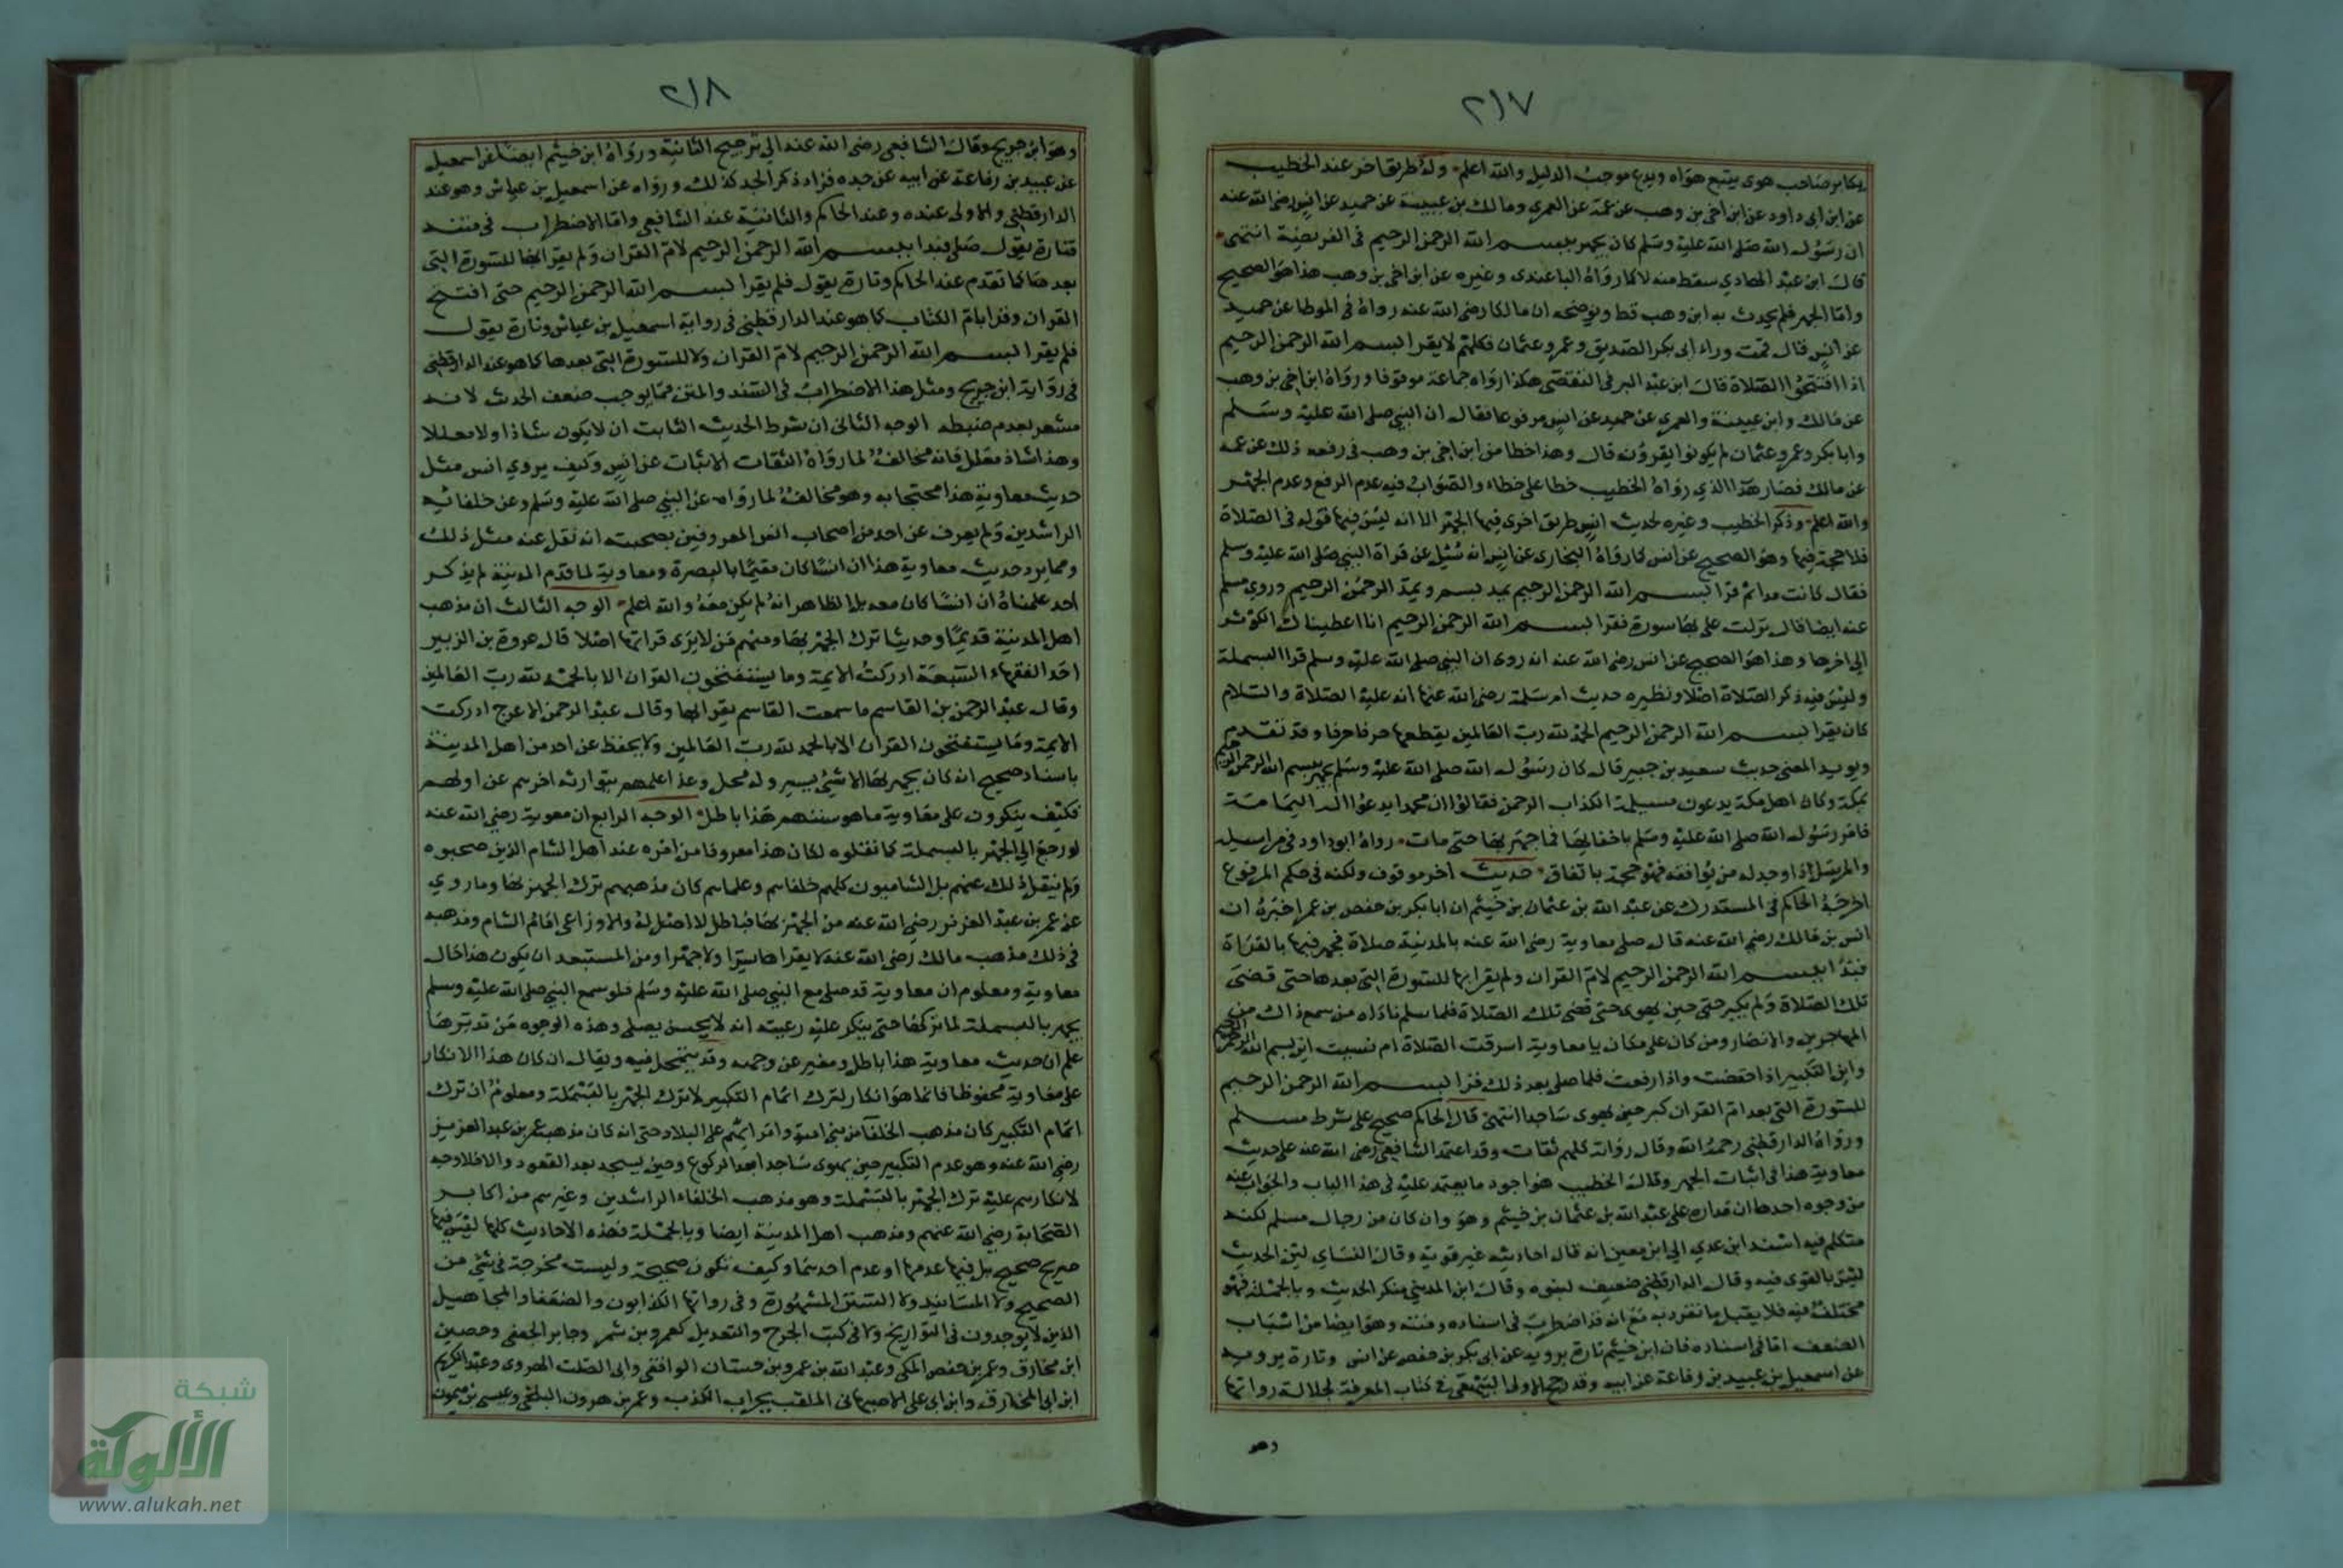 ٢١٧
يكابر صاحب هوى يتبع هواه ويدع موجب الدليل والله اعلم وله طريق اخر عند الخطيب
عن ابن ابى داود عن ابن اخى بن وهب عن عمه عن العمرى ومالك بن عيينة عن حميد عن انس رضى الله عنه
ان رسول الله صلى الله عليه وسلم كان يجهر ببسم الله الرحمن الرحيم فى الفريضة انتهى
قال ابن عبد الهادي سقط منه لا كما رواه الباغندى وغيره عن ابن اخى بن وهب هذا هو الصحيح
واما الجهر فلم يحدث به ابن وهب قط ويوضحه ان مالكا رضى الله عنه رواه فى الموطا عن حميد
عن انس قال قمت وراء ابى بكر الصديق وعمر وعثمان فكلهم لا يقرا بسم الله الرحمن الرحيم
اذا افتتحوا الصلاة قال ابن عبد البر فى التقصى هكذا رواه جماعة موقوفا ورواه ابن اخى بن وهب
عن مالك وابن عيينة والعمرى عن حميد عن انس مرفوعا فقال ان النبى صلى الله عليه وسلم
وابا بكر وعمر وعثمان لم يكونوا يقرؤن قال وهذا خطا من ابن اخى بن وهب فى رفعه ذلك عن عمه
عن مالك فصار هذا الذي رواه الخطيب خطا على خطاء والصواب فيه عدم الرفع وعدم الجهر
والله اعلم وذكر الخطيب وغيره لحديث انس طريق اخرى فيها الجهر الا انه ليس فيها قوله فى الصلاة
فلا حجة فيها وهو الصحيح عن انس كما رواه البخارى عن انس انه سئل عن قراة النبى صلى الله عليه وسلم
فقال كانت مدا ثم قرا بسم الله الرحمن الرحيم يمد بسم ويمد الرحمن الرحيم وروى مسلم
عنه ايضا قال نزلت على انفا سورة فقرا بسم الله الرحمن الرحيم انا اعطيناك الكوثر
الى اخرها وهذا هو الصحيح عن انس رضى الله عنه انه روى ان النبى صلى الله عليه وسلم قرا البسملة
وليس فيه ذكر الصلاة اصلا ونظيره حديث ام سلمة رضى الله عنها انه عليه الصلاة والسلام
كان يقرا بسم الله الرحمن الرحيم الحمد لله رب العالمين يقطعها حرفا حرفا وقد تقدم
ويويد المعنى حديث سعيد بن جبير قال كان رسول الله صلى الله عليه وسلم يجهر ببسم الله الرحمن الرحيم
بمكة وكان اهل مكة يدعون مسيلمة الكذاب الرحمن فقالوا ان محمدا يدعو الى اله اليمامة
فامر رسول الله صلى الله عليه وسلم باخفائها فما جهر بها حتى مات رواه ابو داود فى مراسيله
والمرسل اذا وجد له من يوافقه فهو حجة باتفاق حديث اخر موقوف ولكنه فى حكم المرفوع
اخرجه الحاكم فى المستدرك عن عبد الله بن عثمان بن خيثم ان ابا بكر بن حفص بن عمر اخبره ان
انس بن مالك رضى الله عنه قال صلى معاوية رضى الله عنه بالمدينة صلاة فجهر فيها بالقراة
فبدا ببسم الله الرحمن الرحيم لام القران ولم يقرا بها للسورة التى بعدها حتى قضى
تلك الصلاة ولم يكبر حتى حين يهوى حتى قضى تلك الصلاة فلما سلم ناداه من سمع ذاك من
المهاجرين والانصار ومن كان على مكان يا معاوية اسرقت الصلاة ام نسيت اين بسم الله الرحمن الرحيم
واين التكبير اذا خفضت واذا رفعت فلما صلى بعد ذلك قرا بسم الله الرحمن الرحيم
للسورة التى بعد ام القران كبر حين يهوى ساجدا انتهى قال الحاكم صحيح على شرط مسلم
ورواه الدارقطنى رحمه الله وقال رواته كلهم ثقات وقد اعتمد الشافعى رضى الله عنه على حديث
معاوية هذا فى اثبات الجهر وقال الخطيب هو اجود ما يعتمد عليه فى هذا الباب والجواب عنه
من وجوه احدها ان مداره على عبد الله بن عثمان بن خيثم وهو وان كان من رجال مسلم لكنه
متكلم فيه اسند ابن عدي الى ابن معين انه قال احاديثه غير قوية وقال النساي لين الحديث
ليس بالقوى فيه وقال الدارقطنى ضعيف لينوه وقال ابن المدينى منكر الحديث وبالجملة فهو
مختلف فيه فلا يقبل ما تفرد به مع انه قد اضطرب فى اسناده ومتنه وهو ايضا من اسباب
الضعف اما فى اسناده فان ابن خيثم تارة يرويه عن ابى بكر بن حفص عن انس وتارة يرويه
عن اسمعيل بن عبيد بن رفاعة عن ابيه وقد رجح الاولى البيهقى فى كتاب المعرفة لجلالة رواتها
وهو
٢١٨
وهو ابن جريج وقال الشافعى رضى الله عنه الى ترجيح الثانية ورواه ابن خيثم ايضا عن اسمعيل
عن عبيد بن رفاعة عن ابيه عن جده فزاد ذكر الجد كذلك ورواه عن اسمعيل بن عياش وهو عند
الدارقطنى والاولى عنده وعند الحاكم والثانية عند الشافعى واما الاضطراب فى متنه
فتارة يقول صلى فبدا ببسم الله الرحمن الرحيم لام القران ولم يقرا بها للسورة التى
بعدها كما تقدم عند الحاكم وتارة يقول فلم يقرا بسم الله الرحمن الرحيم حتى افتتح
القران وقرا بام الكتاب كما هو عند الدارقطنى فى رواية اسمعيل بن عياش وتارة يقول
فلم يقرا بسم الله الرحمن الرحيم لام القران ولا للسورة التى بعدها كما هو عند الدارقطنى
فى رواية ابن جريج ومثل هذا الاضطراب فى السند والمتن مما يوجب ضعف الحدث لانه
مشعر بعدم ضبطه الوجه الثانى ان شرط الحديث الثابت ان لا يكون شاذا ولا معللا
وهذا شاذ معلل فانه مخالف لما رواه الثقات الاثبات عن انس وكيف يروي انس مثل
حديث معاوية هذا محتجا به وهو مخالف لما رواه عن النبى صلى الله عليه وسلم وعن خلفائه
الراشدين ولم يعرف عن احد من اصحاب انس المعروفين بصحبته انه نقل عنه مثل ذلك
ومما يرد حديث معاوية هذا ان انسا كان مقيما بالبصرة ومعاوية لما قدم المدينة لم يذكر
احد علمناه ان انسا كان معه بل الظاهر انه لم يكن معه والله اعلم الوجه الثالث ان مذهب
اهل المدينة قديما وحديثا ترك الجهر بها ومنهم من لا يرى قراتها اصلا قال عروة بن الزبير
احد الفقهاء السبعة ادركت الايمة وما يستفتحون القران الا بالحمد لله رب العالمين
وقال عبد الرحمن بن القاسم ما سمعت القاسم يقرا بها وقال عبد الرحمن الاعرج ادركت
الايمة وما يستفتحون القران الا بالحمد لله رب العالمين ولا يحفظ عن احد من اهل المدينة
باسناد صحيح انه كان يجهر بها الا شئ يسير وله محل وهذا عملهم يتوارثه اخرهم عن اولهم
فكيف ينكرون على معاوية ما هو سنتهم هذا باطل الوجه الرابع ان معوية رضى الله عنه
لو رجع الى الجهر بالبسملة كما نقلوه لكان هذا معروفا من امره عند اهل الشام الذين صحبوه
ولم ينقل ذلك عنهم بل الشاميون كلهم خلفاهم وعلماهم كان مذهبهم ترك الجهر بها وما روي
عن عمر بن عبد العزيز رضى الله عنه من الجهر بها فباطل لا اصل له والاوزاعى امام الشام ومذهبه
فى ذلك مذهب مالك رضى الله عنه لا يقراها سرا ولا جهرا ومن المستبعد ان يكون هذا حال
معاوية ومعلوم ان معاوية قد صلى مع النبى صلى الله عليه وسلم فلو سمع النبى صلى الله عليه وسلم
يجهر بالبسملة لما تركها حتى ينكر عليه رعيته انه لا يحسن يصلى وهذه الوجوه من تدبرها
علم ان حديث معاوية هذا باطل ومغير عن وجهه وقد يتمحل فيه ويقال ان كان هذا الانكار
على معاوية محفوظا فانما هو انكار لترك اتمام التكبير لا لترك الجهر بالبسملة ومعلوم ان ترك
اتمام التكبير كان مذهب الخلفا من بنى امية وامرائهم على البلاد حتى انه كان مذهب عمر بن عبد العزيز
رضى الله عنه وهو عدم التكبير حين يهوى ساجدا بعد الركوع وحين يسجد بعد القعود والا فلا وجه
لانكارهم عليه ترك الجهر بالبسملة وهو مذهب الخلفاء الراشدين وغيرهم من اكابر
الصحابة رضى الله عنهم ومذهب اهل المدينة ايضا وبالجملة فهذه الاحاديث كلها ليس فيها
صريح صحيح بل فيها عدمهما او عدم احدهما وكيف تكون صحيحة وليست مخرجة فى شئ من
الصحيح ولا المسانيد ولا السنن المشهورة وفى رواتها الكذابون والضعفا والمجاهيل
الذين لا يوجدون فى التواريخ ولا فى كتب الجرح والتعديل كعمرو بن شمر وجابر الجعفى وحصين
ابن مخارق وعمر بن حفص المكى وعبد الله بن عمرو بن حسان الواقفى وابى الصلت الهروى وعبد الكريم
ابن ابى المخارق وابن ابى على الاصبهانى الملقب بجراب الكذب وعمر بن هرون البلخى وعيسى بن ميمون
شبكة
الألوكة
www.alukah.net